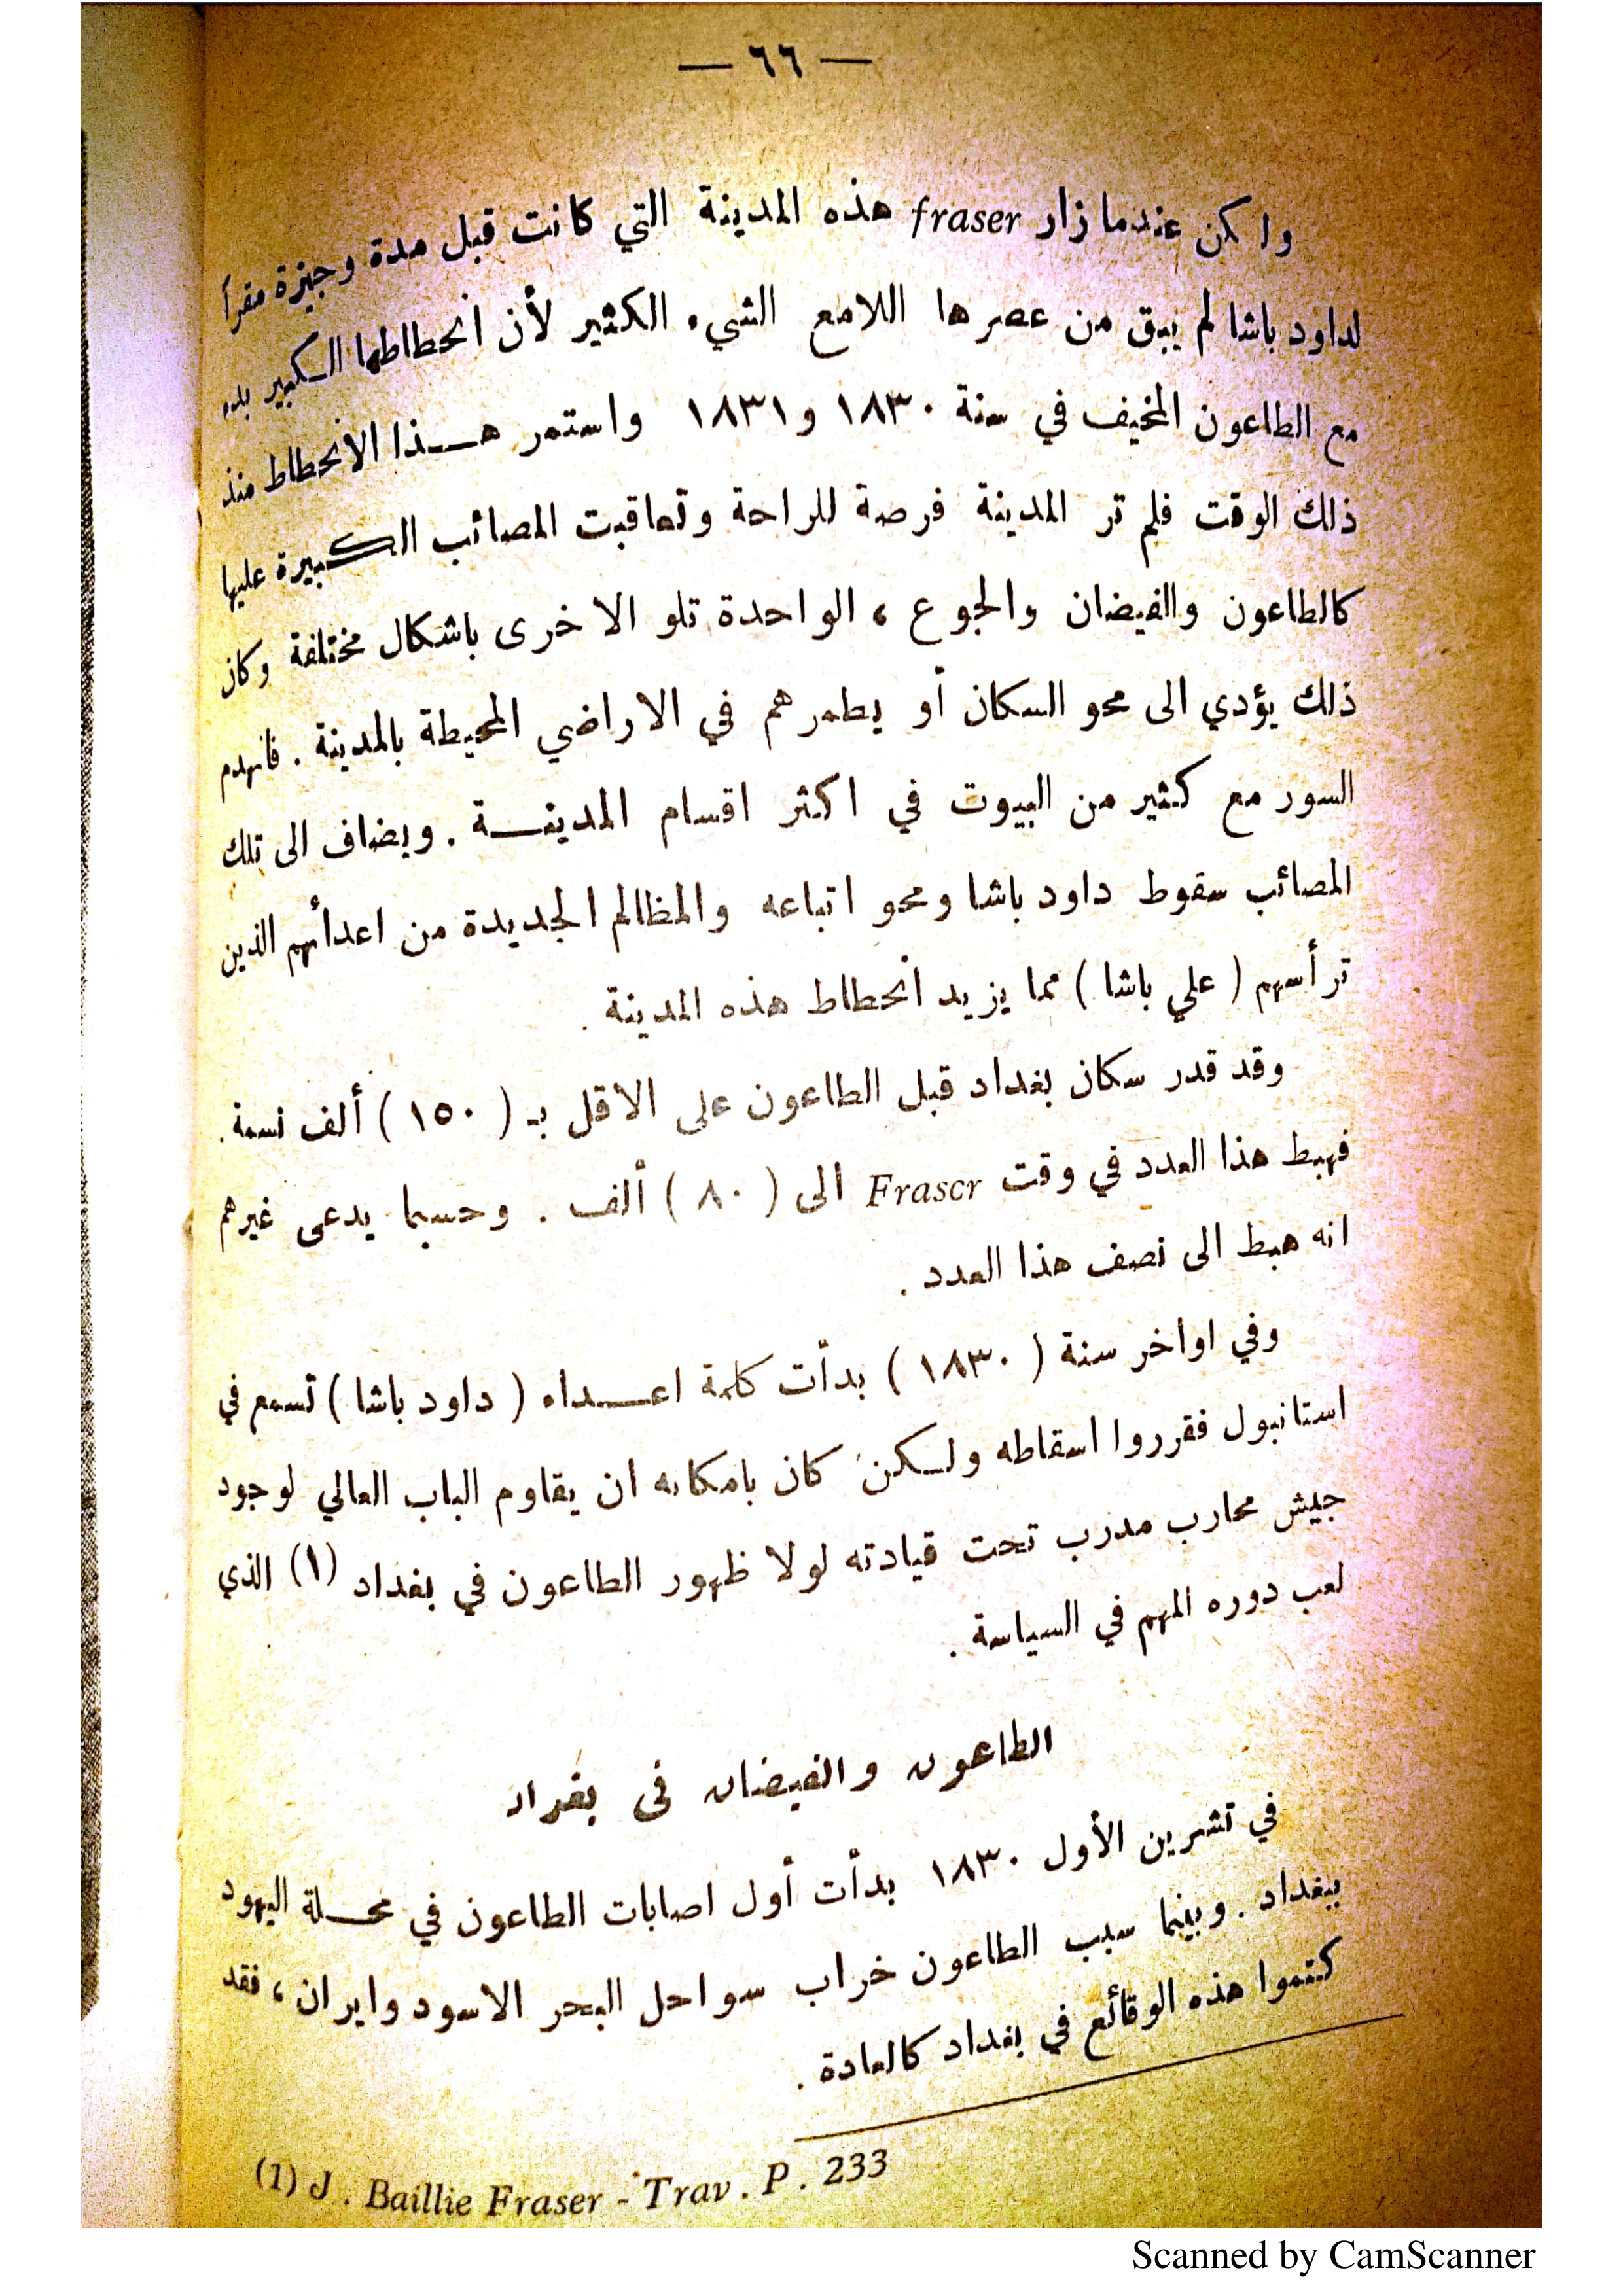 — ٦٦ —
ولكن عندما زار fraser هذه المدينة التي كانت قبل مدة وجيزة مقراً
لداود باشا لم يبق من عصرها اللامع الشيء الكثير لأن انحطاطها الكبير بدء
مع الطاعون المخيف في سنة ١٨٣٠ و١٨٣١ واستمر هذا الانحطاط منذ
ذلك الوقت فلم تر المدينة فرصة للراحة وتعاقبت المصائب الكبيرة عليها
كالطاعون والفيضان والجوع ، الواحدة تلو الاخرى باشكال مختلفة وكان
ذلك يؤدي الى محو السكان أو يطمرهم في الاراضي المحيطة بالمدينة . فانهدم
السور مع كثير من البيوت في اكثر اقسام المدينة . ويضاف الى تلك
المصائب سقوط داود باشا ومحو اتباعه والمظالم الجديدة من اعدائهم الذين
ترأسهم ( علي باشا ) مما يزيد انحطاط هذه المدينة .
وقد قدر سكان بغداد قبل الطاعون على الاقل بـ ( ١٥٠ ) ألف نسمة .
فهبط هذا العدد في وقت Frascr الى ( ٨٠ ) ألف . وحسبما يدعى غيرهم
انه هبط الى نصف هذا العدد .
وفي اواخر سنة ( ١٨٣٠ ) بدأت كلمة اعداء ( داود باشا ) تسمع في
استانبول فقرروا اسقاطه ولكن كان بامكانه ان يقاوم الباب العالي لوجود
جيش محارب مدرب تحت قيادته لولا ظهور الطاعون في بغداد (١) الذي
لعب دوره المهم في السياسة .
الطاعون والفيضان في بغداد
في تشرين الأول ١٨٣٠ بدأت أول اصابات الطاعون في محلة اليهود
ببغداد . وبينما سبب الطاعون خراب سواحل البحر الاسود وايران ، فقد
كتموا هذه الوقائع في بغداد كالعادة .
(1) J . Baillie Fraser - Trav . P . 233
Scanned by CamScanner